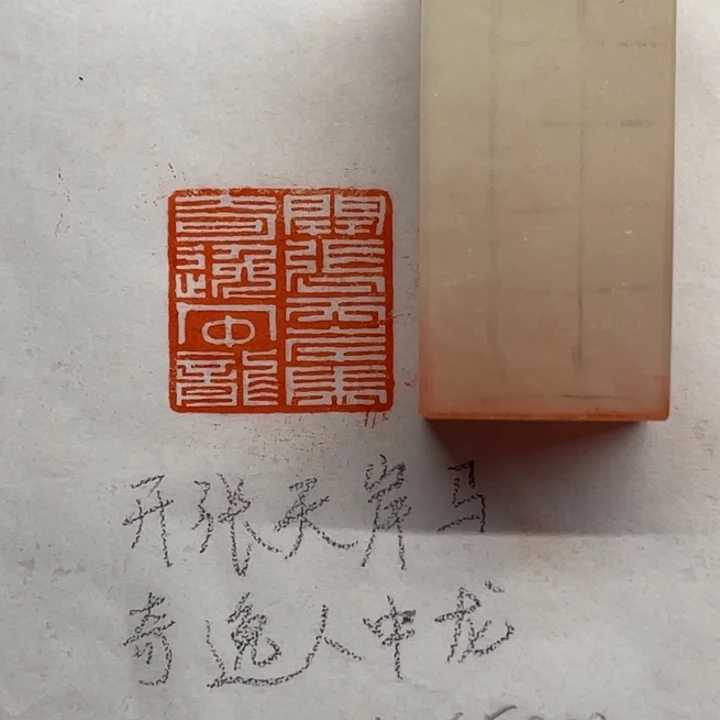 開張天岸馬
奇逸人中龍
开张天岸马
奇逸人中龙